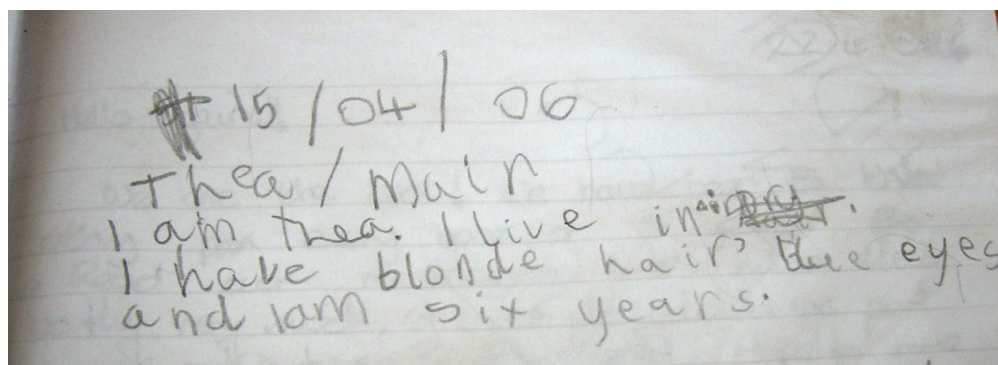 15/04/06
Thea/main
I am thea. I live in
I have blonde hair, blue eyes
and I am six years.